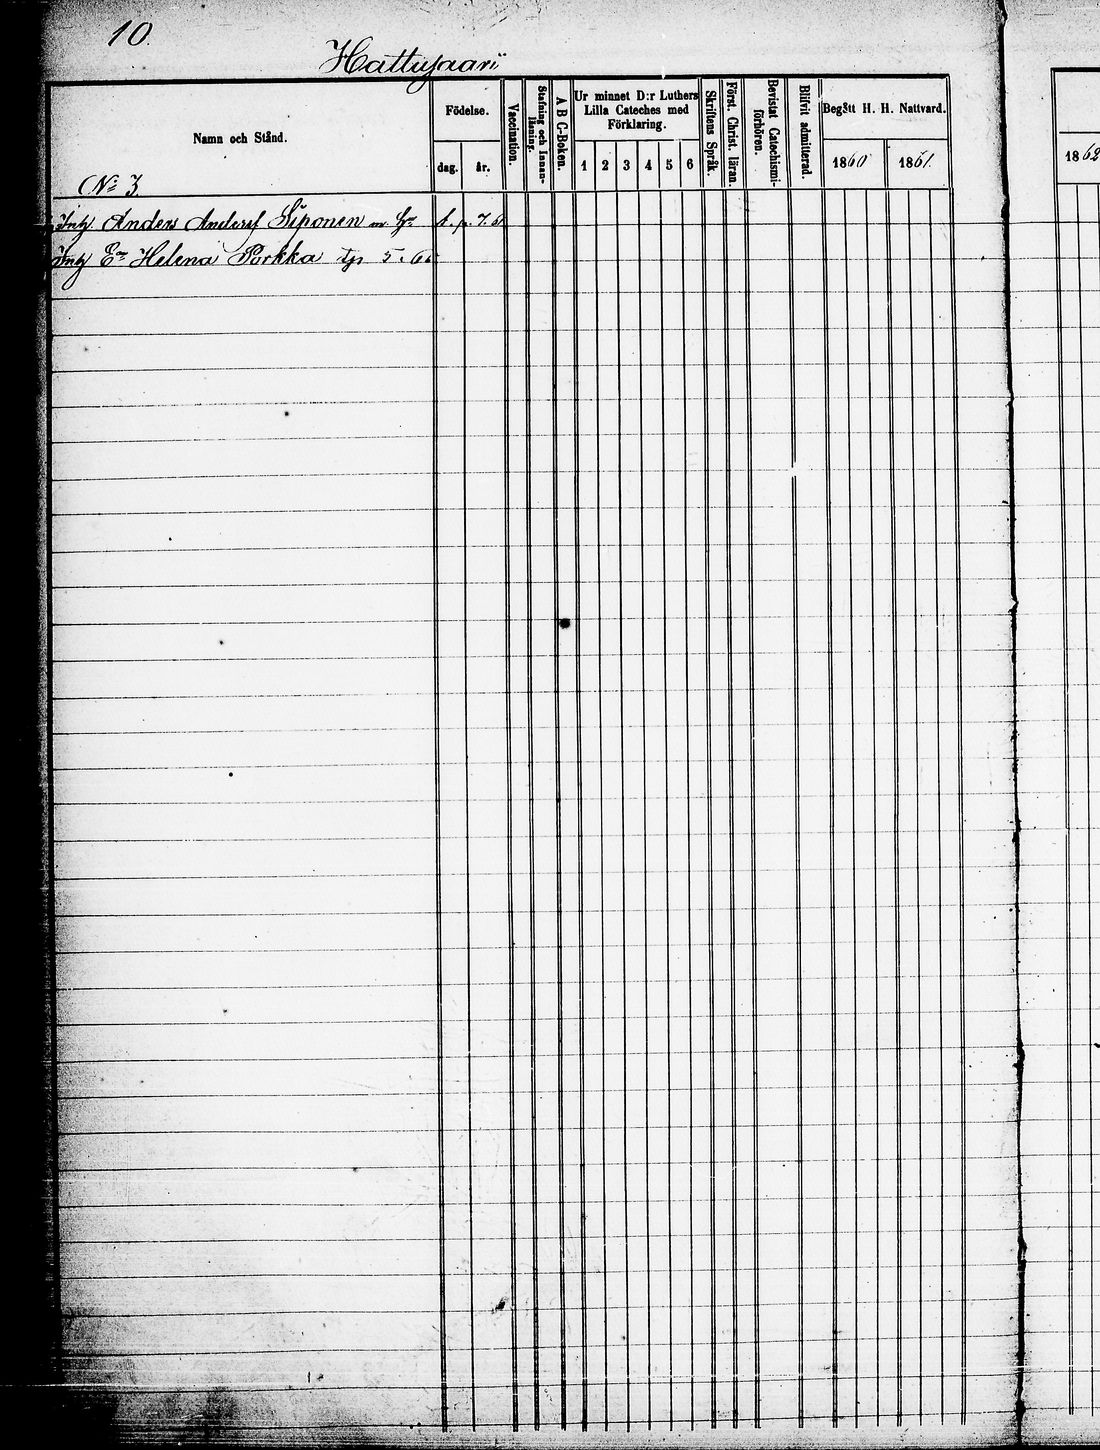 10.
Hattusaari
Namn och Stånd.
Födelse.
dag. år.
Vaccination.
Stafning och Innanläsning.
A B C-Boken.
Ur minnet D:r Luthers
Lilla Cateches med
Förklaring.
1 2 3 4 5 6
Skriftens Språk.
Först. Christ. läran.
Bevistat Catechismiförhören.
Blifvit admitterad.
Begått H. H. Nattvard.
1860 1861.
1862
No 3.
Anders Andersf Siponen m. h. p. 7. 6
Helena Porkka 5.